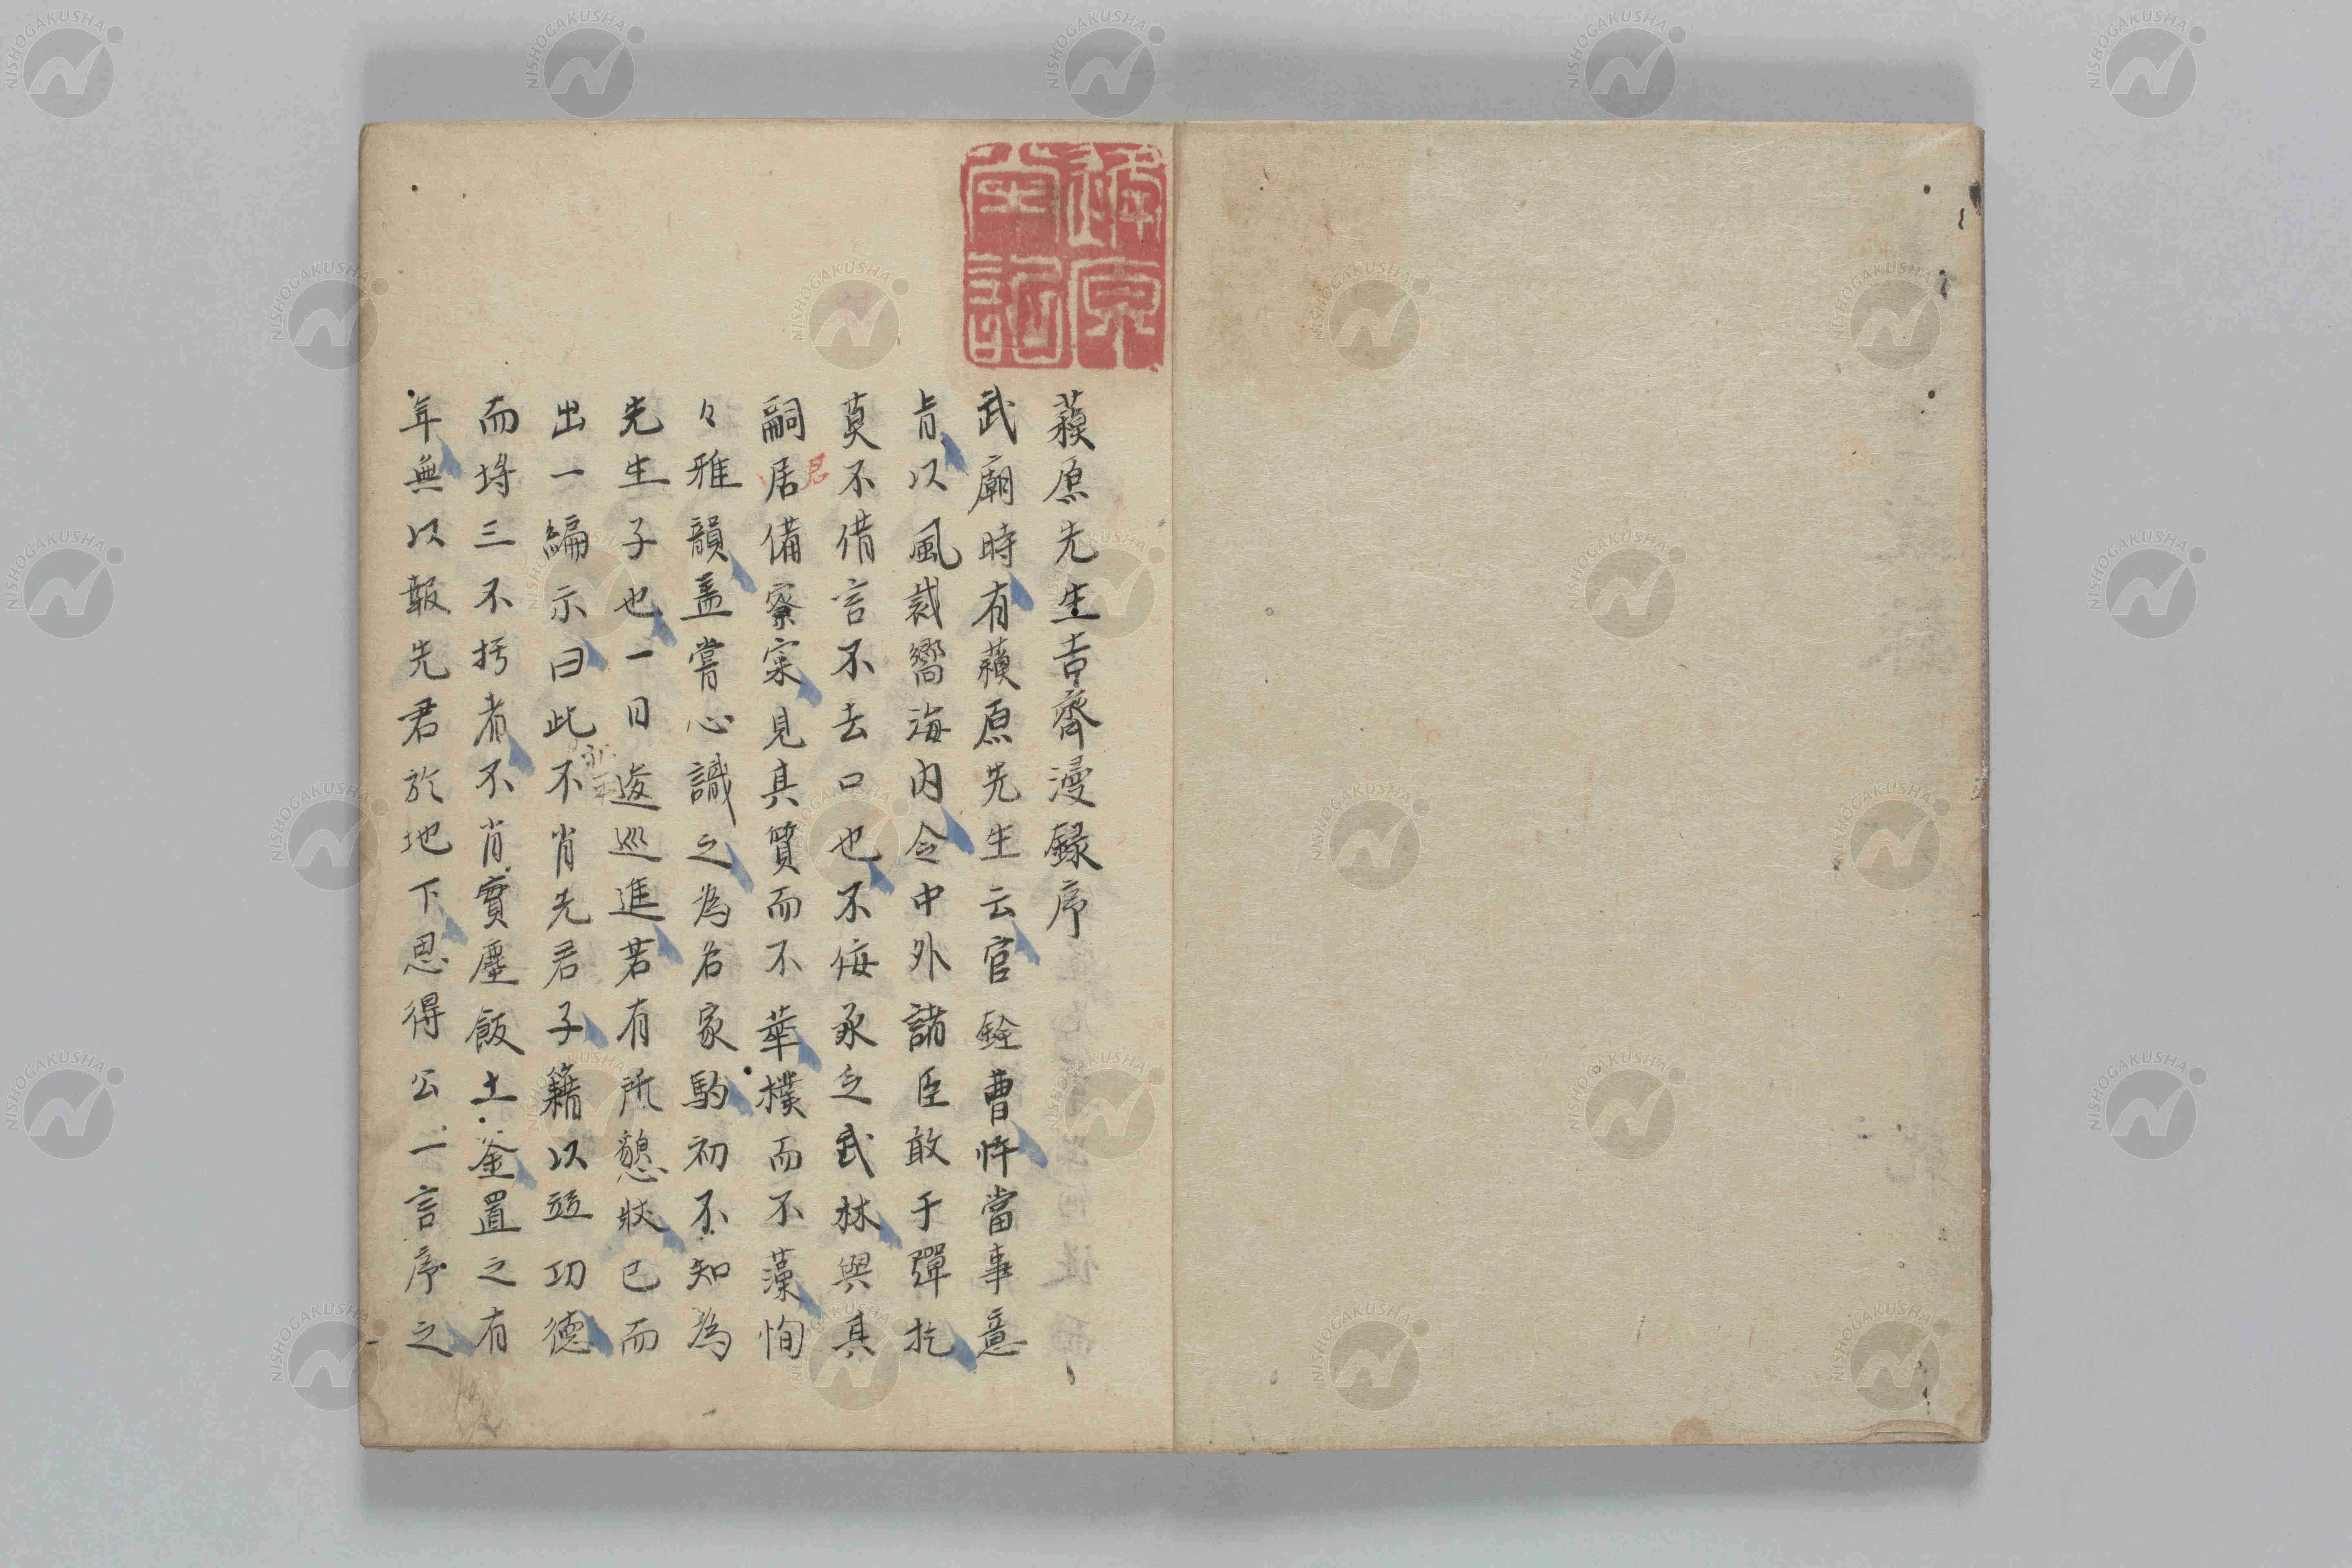 蘋原先生吉齋漫録序
武廟時有蘋原先生云官銓曹忤當事意
㫖以風裁嚮海内令中外諸臣敢于彈扢
莫不借言不去口也不侫承乏武林與其
嗣居備寮寀見其質而不華樸而不藻恂
君
々雅韻盖嘗心識之為名家駒初不知為
先生子也一日逡巡進若有所懇狀已而
出一編示曰此不肖先君子籍以竝功德
而埓三不朽者不肖實塵飯土釜置之有
年無以報先君於地下思得公一言序之
NISHOGAKUSHA